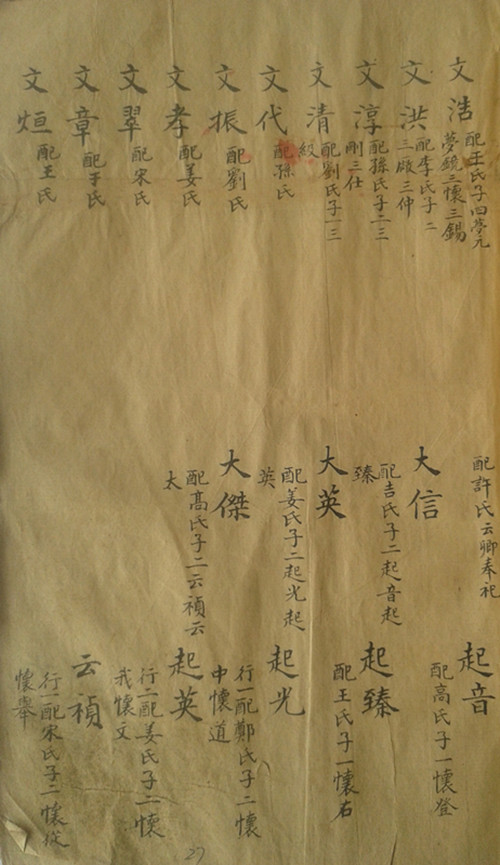 文浩
配王氏子四夢元
夢鏡三懷三錫
文洪
配李氏子二
三啟三仲
文淳
配孫氏子二三
剛三仕
文清
配劉氏子一三
級
文代
配孫氏
文振
配劉氏
文孝
配姜氏
文翠
配宋氏
文章
配于氏
文烜
配王氏
配許氏云卿奉祀
大信
配吉氏子二起音起
臻
大英
配姜氏子二起光起
英
大傑
配高氏子二云禎云
太
起音
配高氏子一懷登
起臻
配王氏子一懷右
起光
行一配鄭氏子二懷
中懷道
起英
行二配姜氏子二懷
我懷文
云禎
行一配宋氏子二懷從
懷舉
27